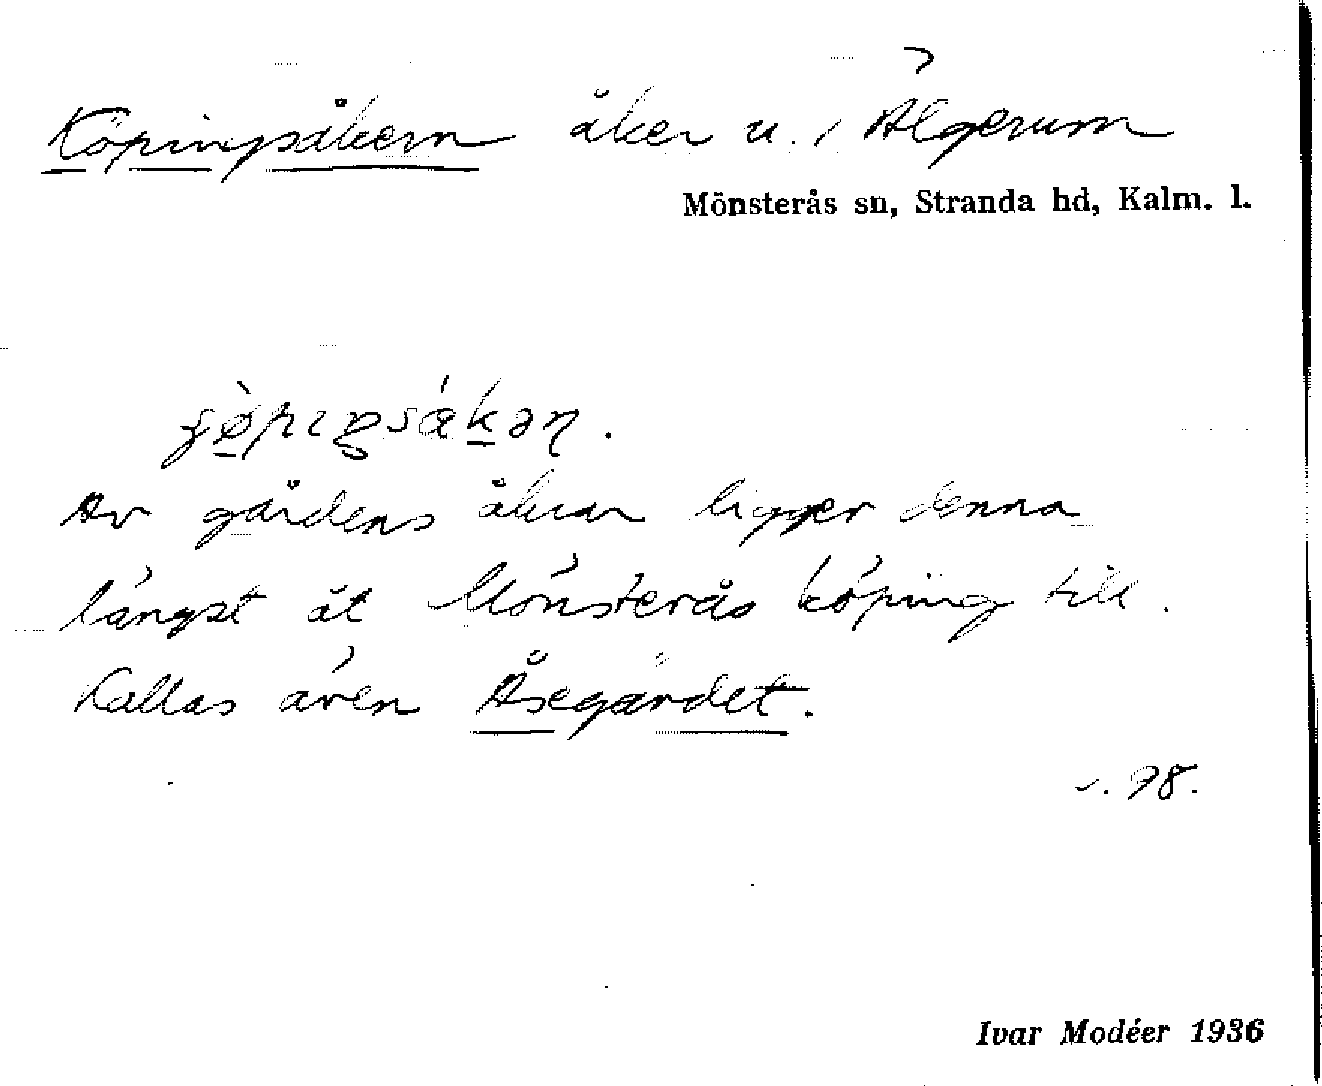 Köpingsåkern åker u. / Älgerum
Mönsterås sn, Stranda hd, Kalm. l.
Av gårdens åkrar ligger denna
längst åt Mönsterås köping till.
Kallas även Åsegärdet.
98.
Ivar Modéer 1936